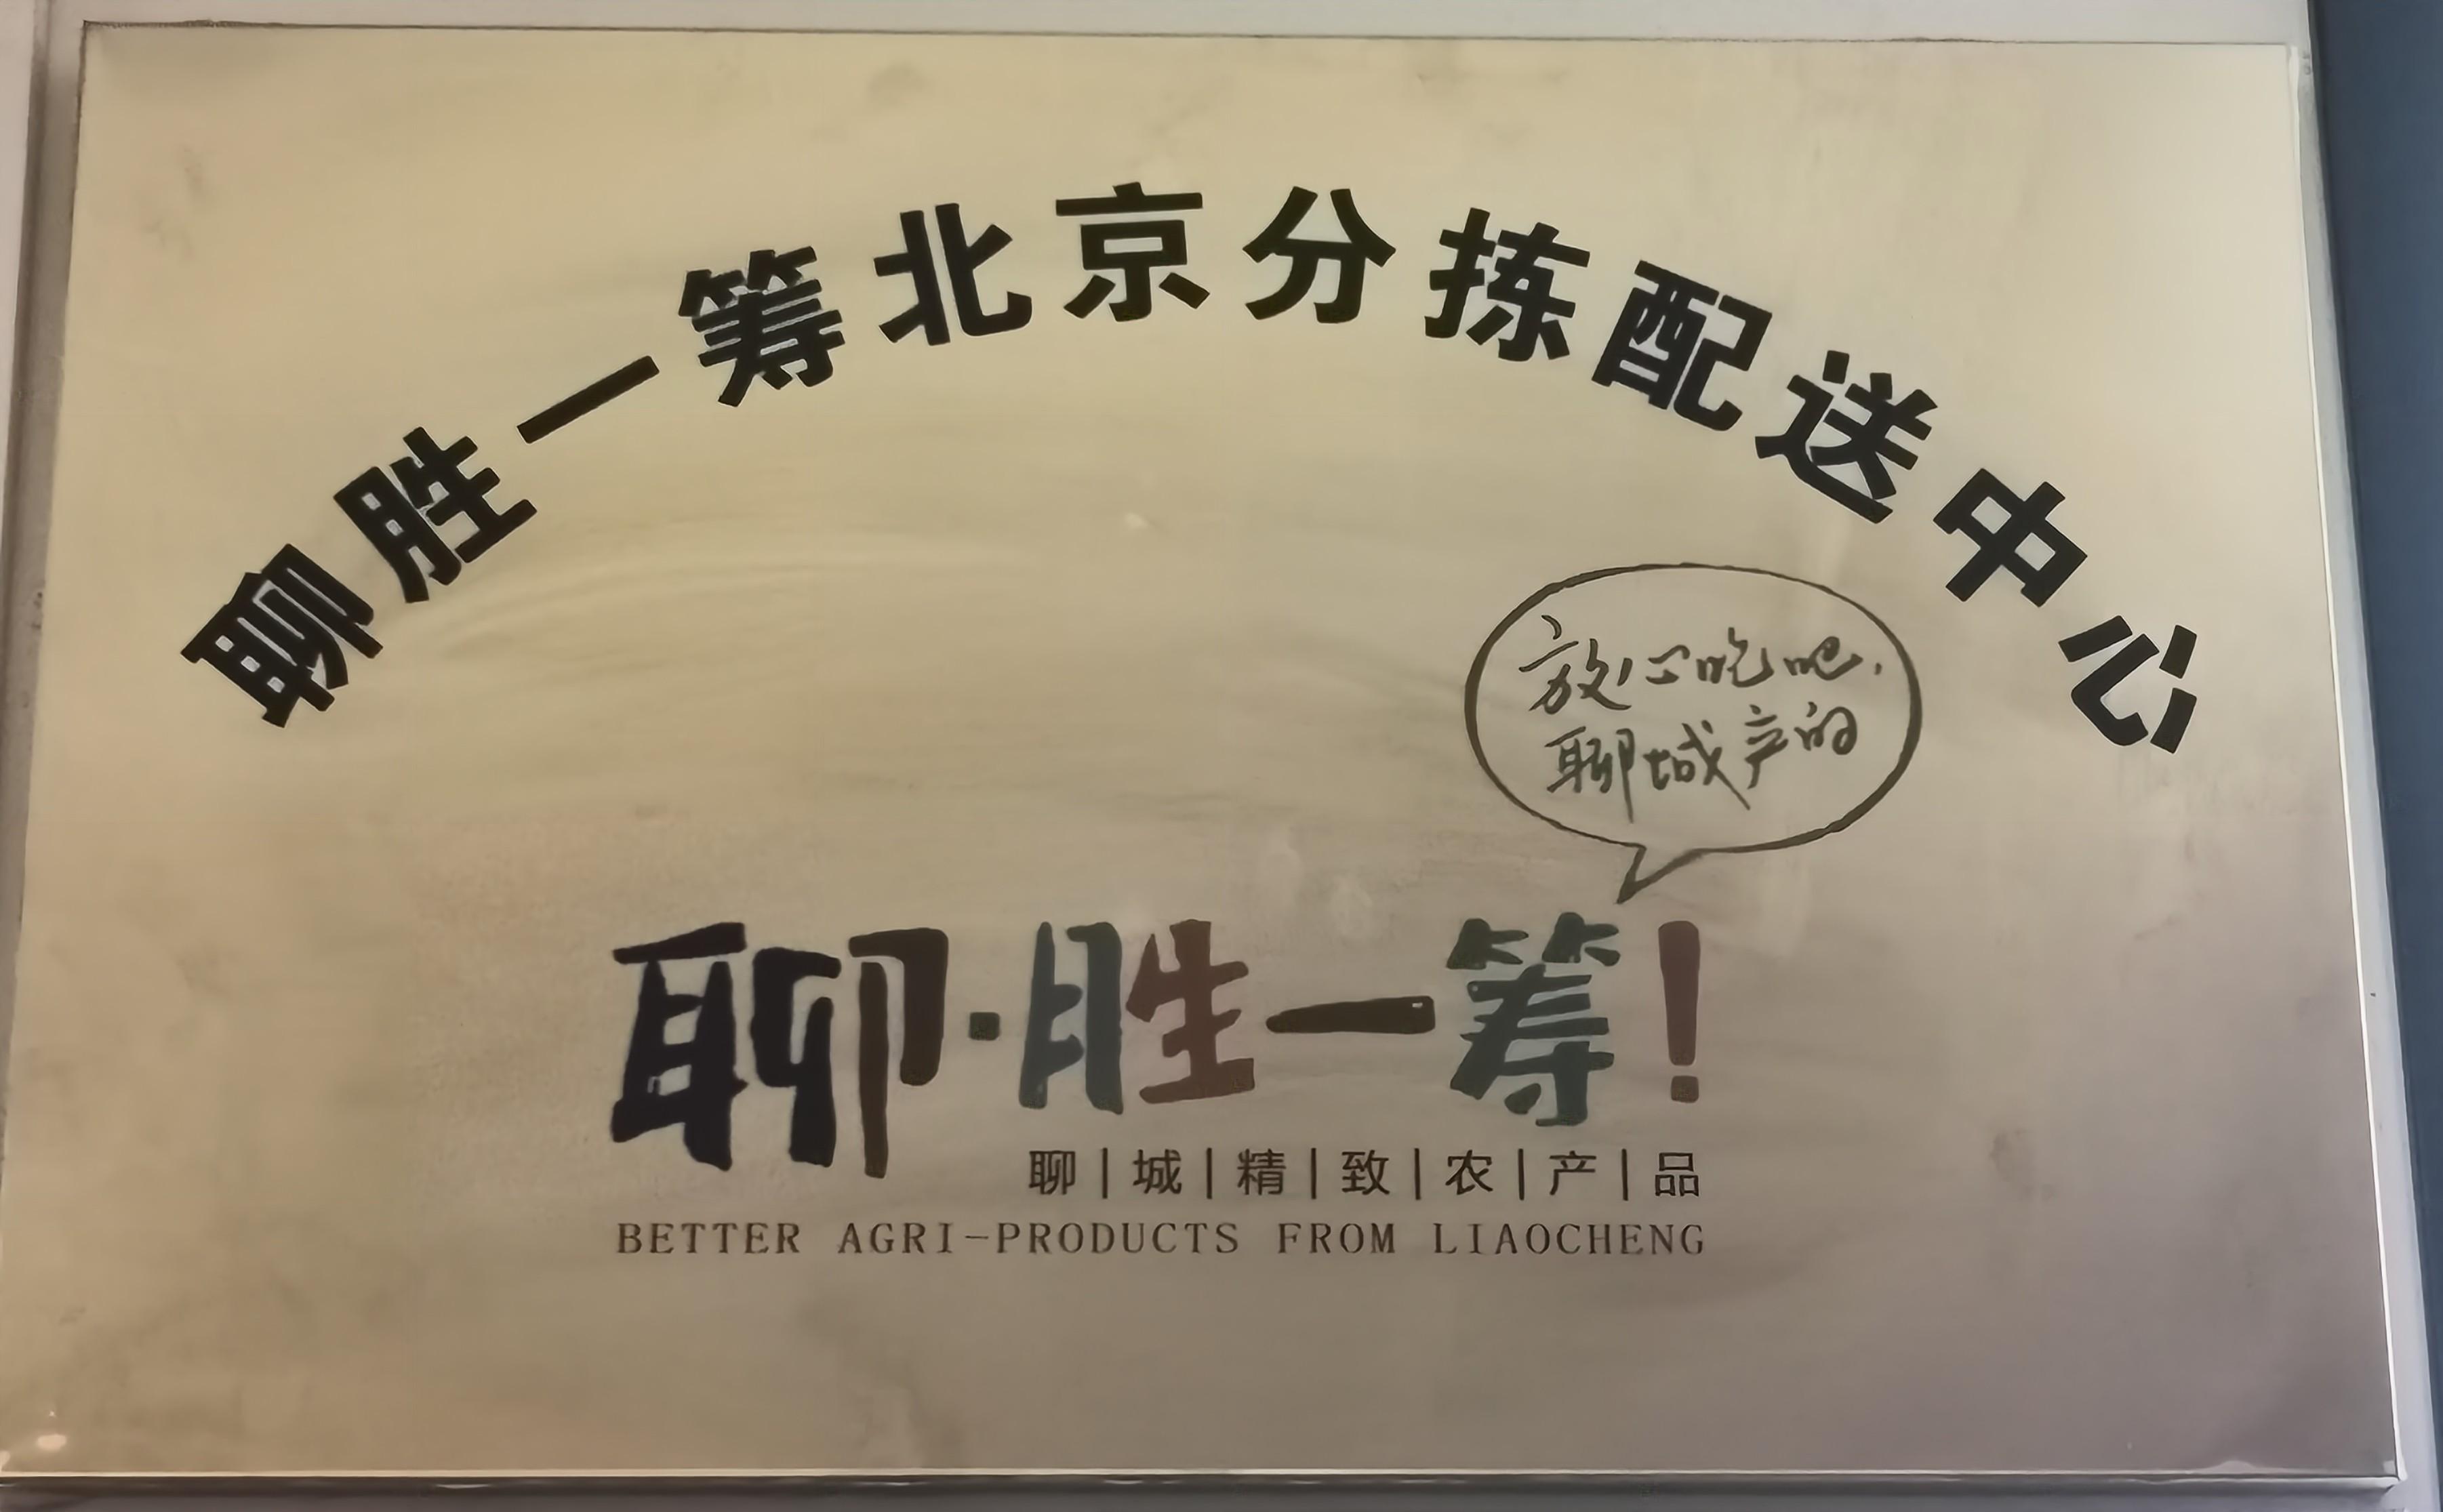 聊胜一筹北京分拣配送中心
放心吃吧，
聊城产的
聊·胜一筹！
聊|城|精|致|农|产|品
BETTER AGRI-PRODUCTS FROM LIAOCHENG